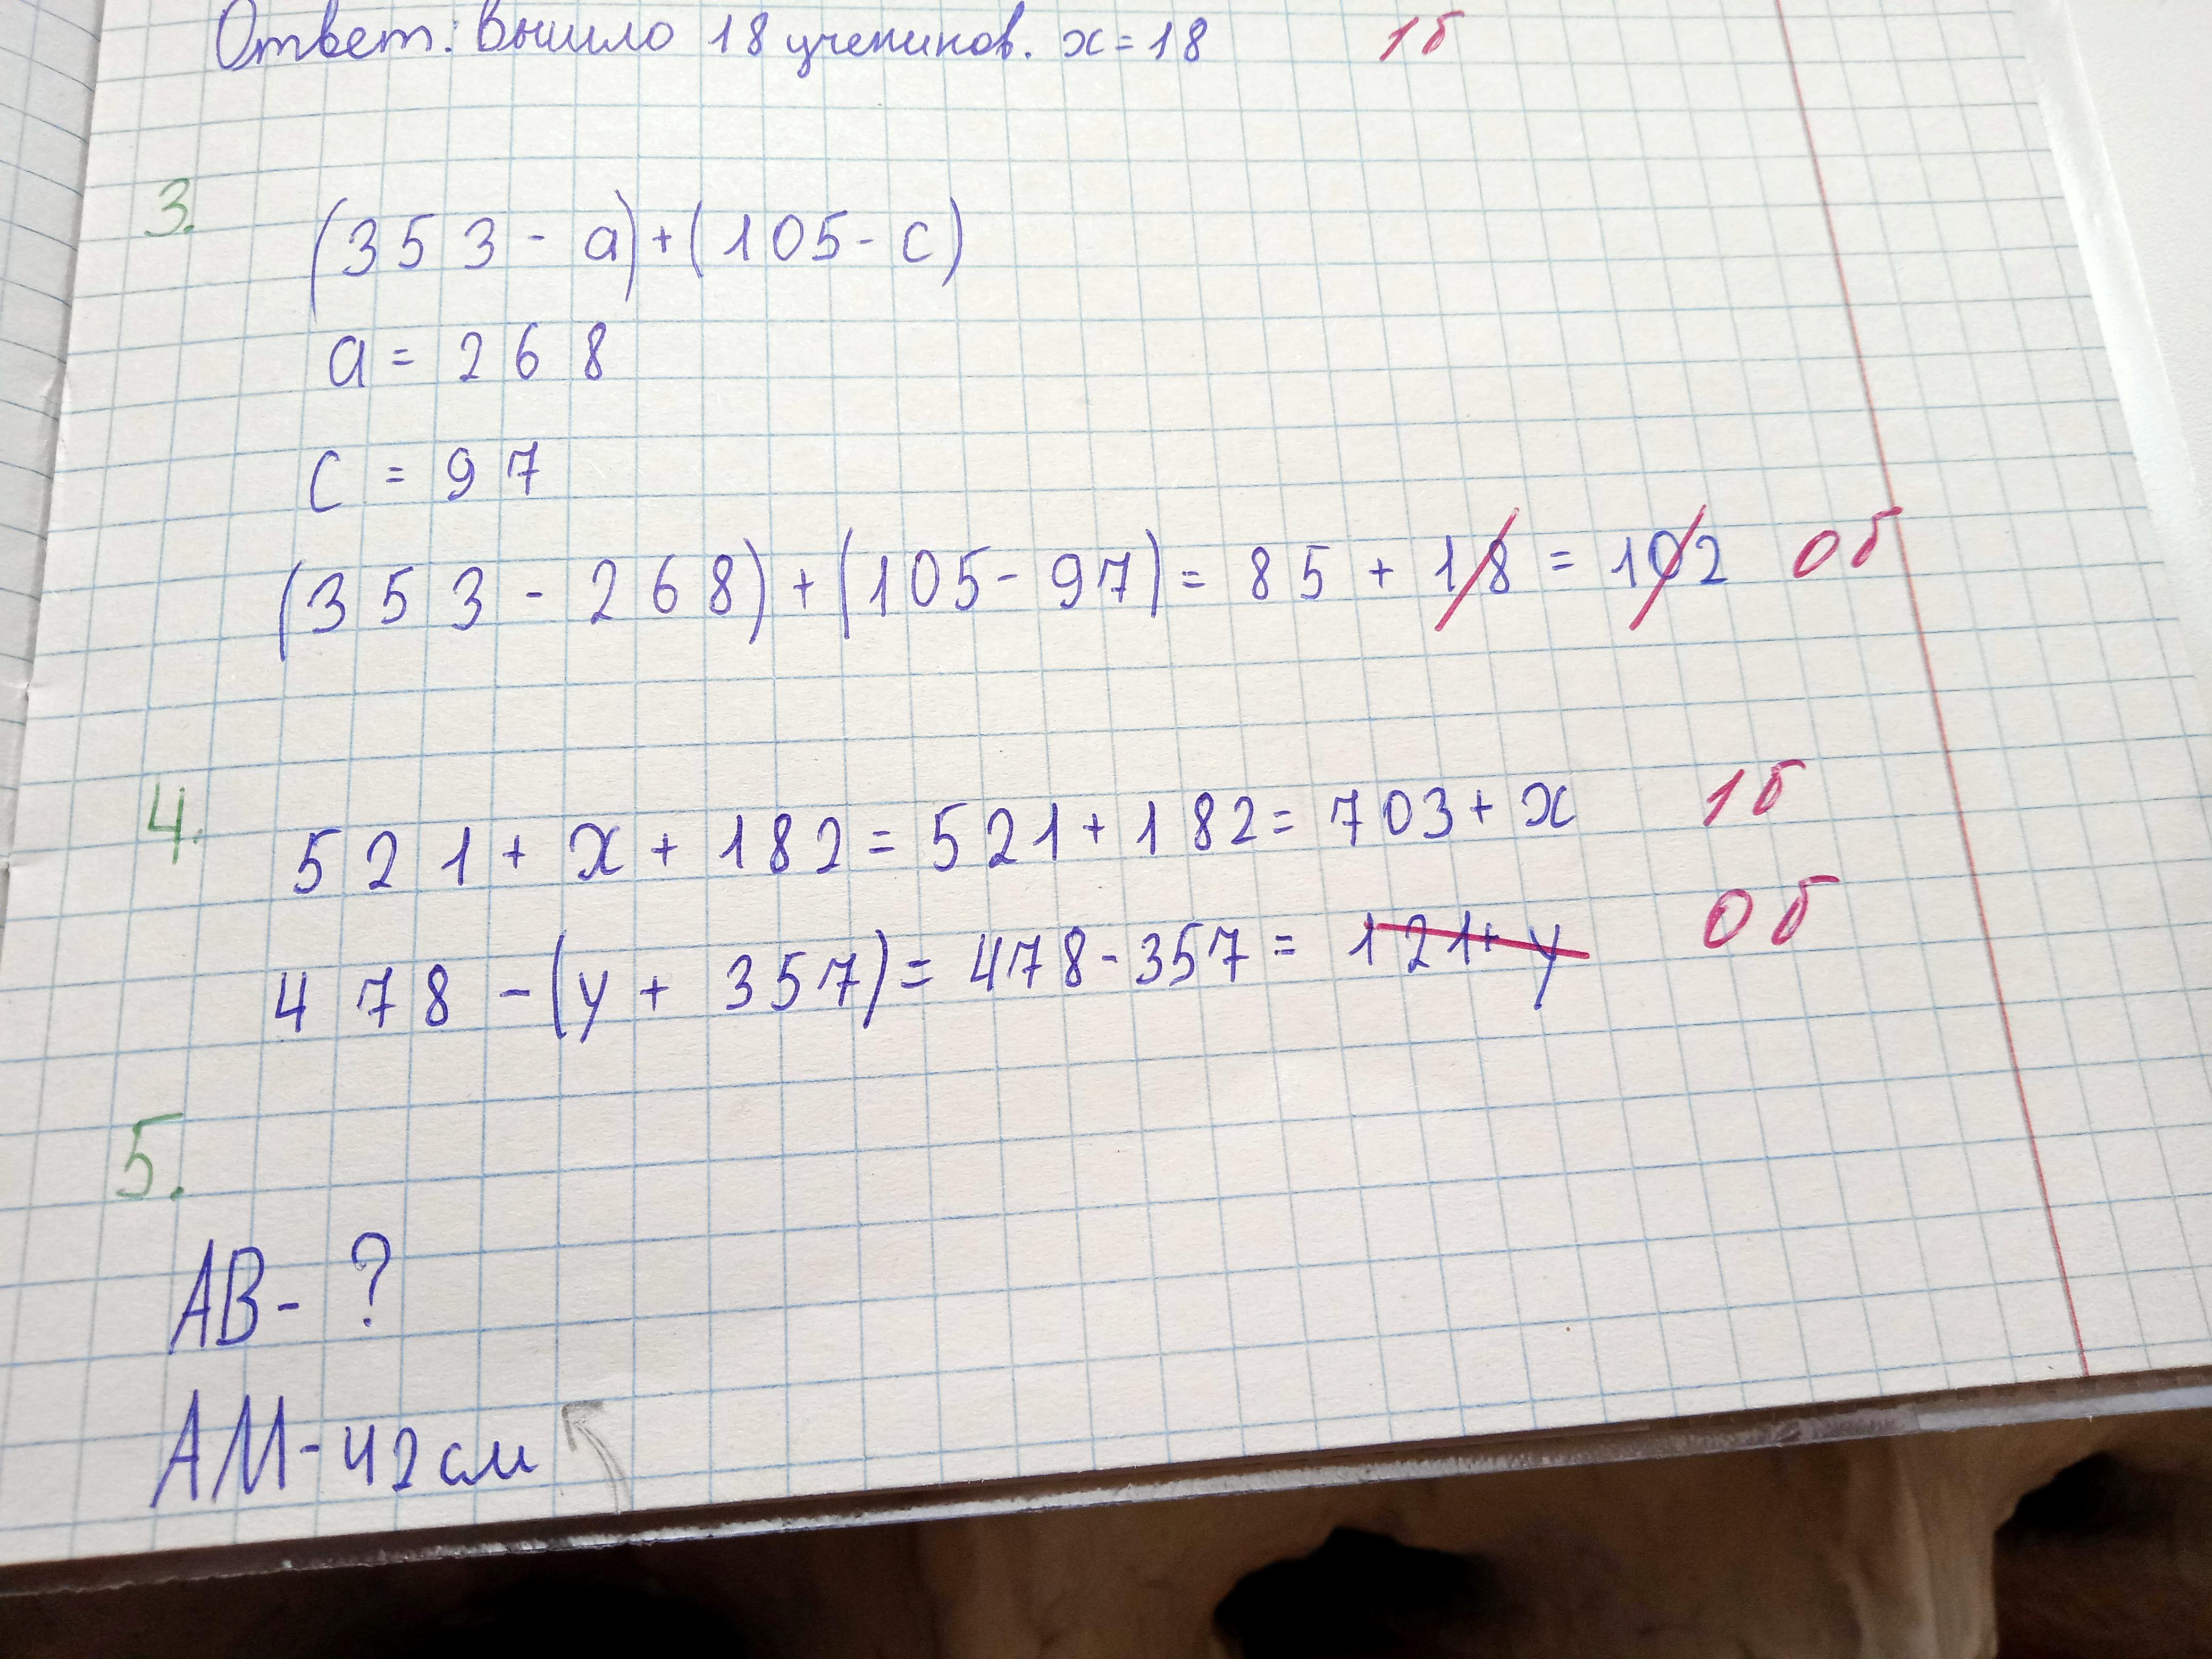 Ответ: Вышло 18 учеников. x = 18 1б
3.
(353 - a) + (105 - c)
a = 268
c = 97
(353 - 268) + (105 - 97) = 85 + 18 = 102 0б
4.
521 + x + 182 = 521 + 182 = 703 + x 1б
478 - (y + 357) = 478 - 357 = 121 + y 0б
5.
AB - ?
AM - 42 см